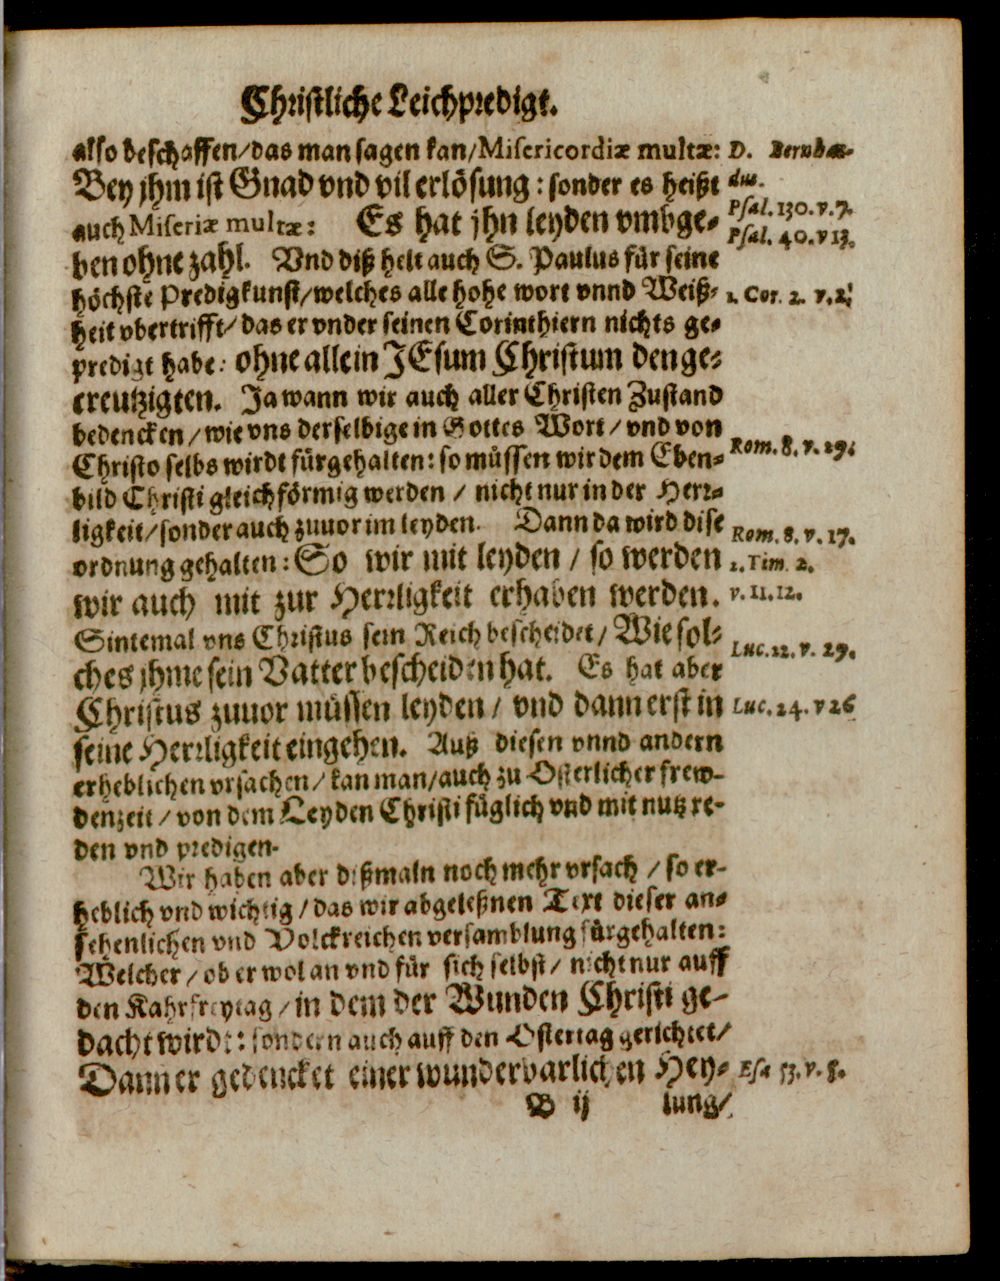 Christliche Leichpredigt.
also beschaffen/das man sagen kan/Misericordiæ multæ:
Bey jhm ist Gnad vnd vil erlösung: sonder es heißt
auch Miseriæ multæ: Es hat jhn leyden vmbge-
ben ohne zahl. Vnd diß helt auch S. Paulus für seine
höchste Predigkunst/welches alle hohe wort vnnd Weiß-
heit vbertrifft/das er vnder seinen Corinthiern nichts ge-
predigt habe: ohne allein JEsum Christum den ge-
creutzigten. Ja wann wir auch aller Christen Zustand
bedencken/wie vns derselbige in Gottes Wort/vnd von
Christo selbs wirdt fürgehalten: so müssen wir dem Eben-
bild Christi gleichförmig werden / nicht nur in der Herr-
ligkeit/sonder auch zuuor im leyden. Dann da wird dise
ordnung gehalten: So wir mit leyden / so werden
wir auch mit zur Herrligkeit erhaben werden.
Sintemal vns Christus sein Reich bescheidet/Wie sol-
ches jhme sein Vatter bescheiden hat. Es hat aber
Christus zuuor müssen leyden / vnd dann erst in
seine Herrligkeit eingehen. Auß diesen vnnd andern
erheblichen vrsachen/kan man/auch zu Osterlicher frew-
denzeit/von dem Leyden Christi füglich vnd mit nutz re-
den vnd predigen.
Wir haben aber dißmaln noch mehr vrsach / so er-
heblich vnd wichtig/das wir abgeleßnen Text dieser an-
sehenlichen vnd Volckreichen versamblung fürgehalten:
Welcher/ob er wol an vnd für sich selbst/nicht nur auff
den Kahrfreytag/in dem der Wunden Christi ge-
dacht wirdt: sondern auch auff den Ostertag gerichtet/
Dann er gedencket einer wunderbarlichen Hey-
B ij lung/
D. Bernhar-
dus.
Psal. 130. v. 7.
Psal. 40. v 13.
1. Cor. 2. v. 2.
Rom. 8. v. 29.
Rom. 8. v. 17.
2. Tim. 2.
v. 11. 12.
Luc. 22. v. 29.
Luc. 24. v 26
Esa 53. v. 5.